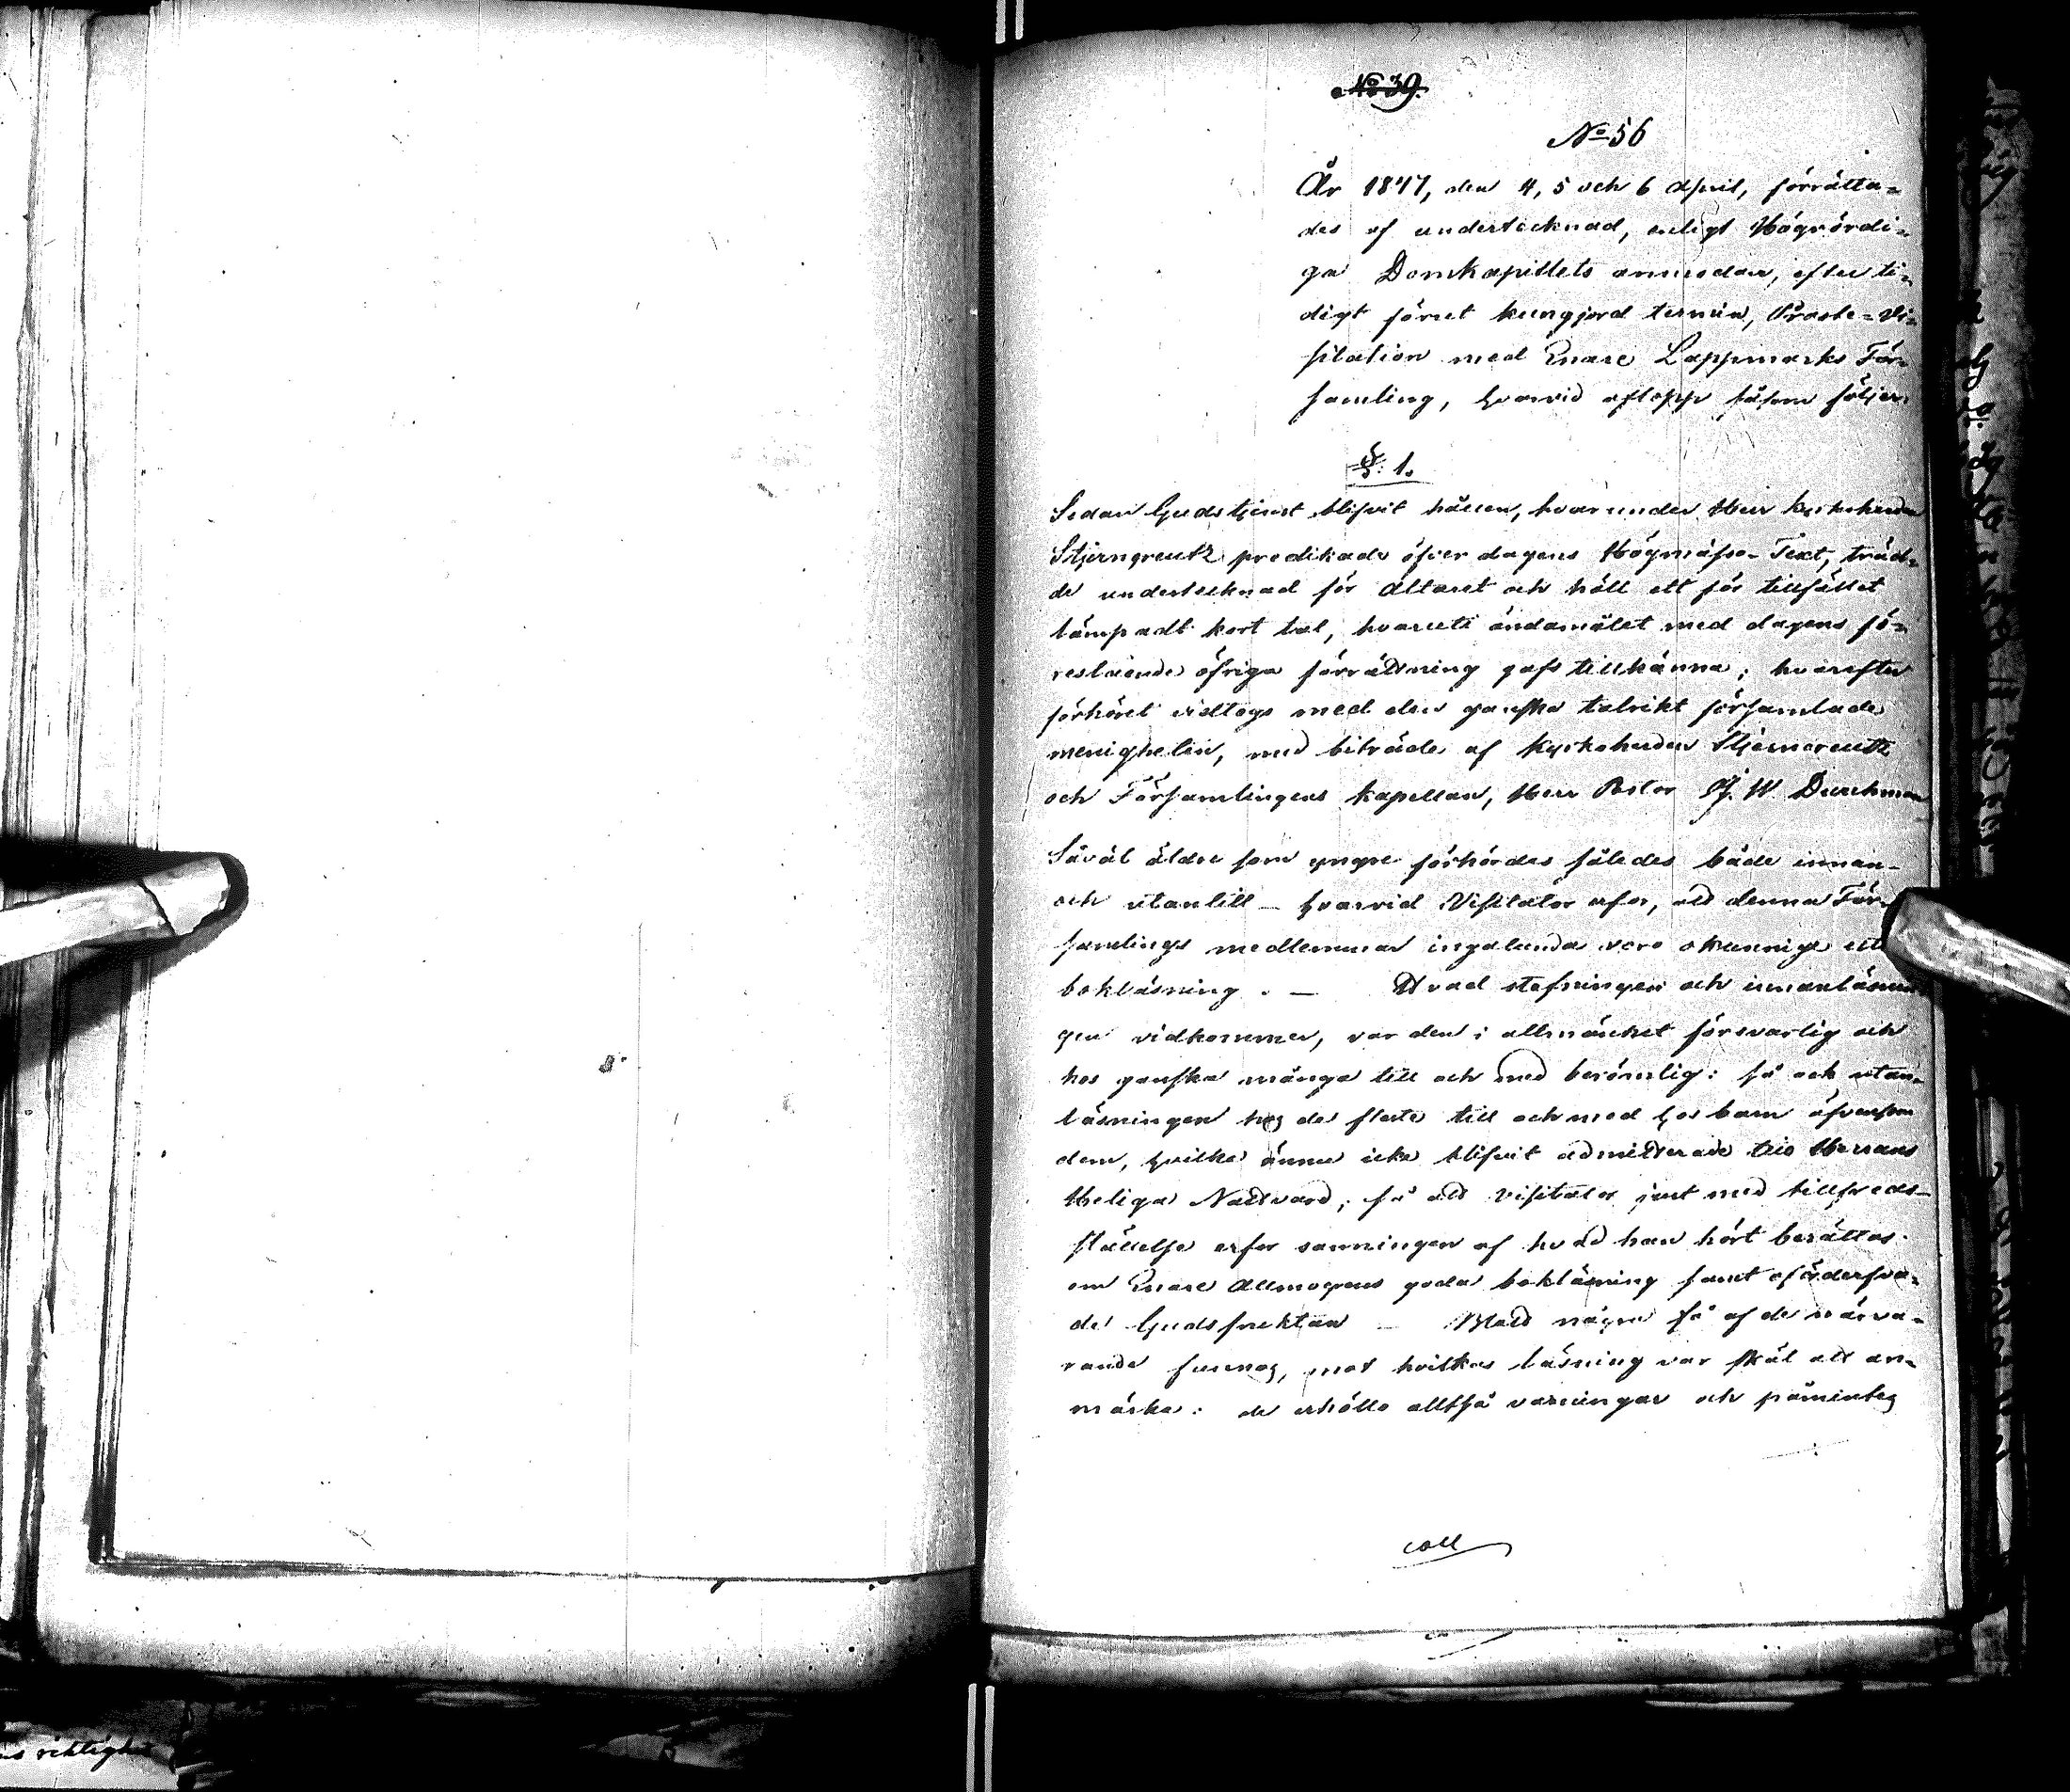 No 39.
No 56
År 1847, den 4, 5 och 6 April, förrätta-
des af undertecknad, enligt Högvördi-
ga Domkapitlets anmodan, efter ti-
digt förut kungjord termin, Proste-Vi-
sitation med Enare Lappmarks För-
samling, hvarvid aflopp såsom följer:
§. 1.
Sedan Gudstjenst blifvit hållen, hvarunder Herr Kyrkoherden
Stjerncreutz predikade öfver dagens Högmässo-Text, träd-
de undertecknad för Altaret och höll ett för tillfället
lämpadt kort tal, hvaruti ändamålet med dagens fö-
restående öfriga förrättning gafs tillkänna; hvarefter
förhöret vidtogs med den ganska talrikt församlade
menigheten, med biträde af Kyrkoherden Stjerncreutz
och Församlingens Kapellan, Herr Pastor J. W. Durchman
Såväl äldre som yngre förhördes således både innan-
och utantill – hvarvid Visitator erfor, att denna För-
samlings medlemmar ingalunda voro okunnige uti
bokläsning. – Hvad stafningen och innanläsnin-
gen vidkommer, var den i allmänhet försvarlig och
hos ganska många till och med berömlig: så ock utan-
läsningen hos de flesta till och med hos barn äfvensom
dem, hvilka ännu icke blifvit admitterade till Herrans
Heliga Nattvard; så att Visitator just med tillfreds-
ställelse erfor sanningen af hvad han hört berättas
om Enare Allmogens goda bokläsning samt oförderfva-
de Gudsfruktan – Blott några få af de närva-
rande funnos, mot hvilkas läsning var skäl att an-
märka: de erhöllo alltså varningar och påmintes
coll
ns riktighet